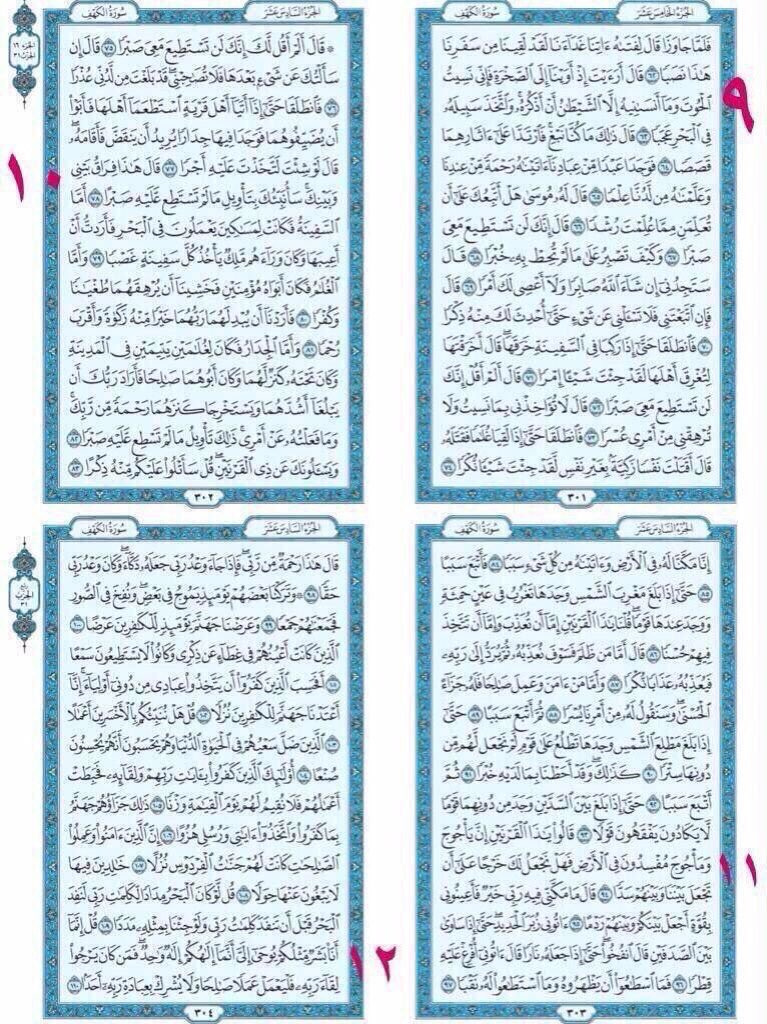 الجزء الخامس عشر
سورة الكهف
فلما جاوزا قال لفتىه ءاتنا غداءنا لقد لقينا من سفرنا
هذا نصبا ٦٢ قال أرءيت إذ أوينا إلى الصخرة فإني نسيت
الحوت وما أنسىنيه إلا الشيطن أن أذكره واتخذ سبيله
في البحر عجبا ٦٣ قال ذلك ما كنا نبغ فارتدا على ءاثارهما
قصصا ٦٤ فوجدا عبدا من عبادنا ءاتينه رحمة من عندنا
وعلمنه من لدنا علما ٦٥ قال له موسى هل أتبعك على أن
تعلمن مما علمت رشدا ٦٦ قال إنك لن تستطيع معي
صبرا ٦٧ وكيف تصبر على ما لم تحط به خبرا ٦٨ قال
ستجدني إن شاء الله صابرا ولا أعصي لك أمرا ٦٩ قال
فإن اتبعتني فلا تسءلني عن شيء حتى أحدث لك منه ذكرا
٧٠ فانطلقا حتى إذا ركبا في السفينة خرقها قال أخرقتها
لتغرق أهلها لقد جئت شيئا إمرا ٧١ قال ألم أقل إنك
لن تستطيع معي صبرا ٧٢ قال لا تؤاخذني بما نسيت ولا
ترهقني من أمري عسرا ٧٣ فانطلقا حتى إذا لقيا غلما فقتله
قال أقتلت نفسا زكية بغير نفس لقد جئت شيئا نكرا ٧٤
٣٠١
٩
الجزء السادس عشر
سورة الكهف
الجزء ١٦
الحزب ٣١
۞ قال ألم أقل لك إنك لن تستطيع معي صبرا ٧٥ قال إن
سألتك عن شيء بعدها فلا تصحبني قد بلغت من لدني عذرا
٧٦ فانطلقا حتى إذا أتيا أهل قرية استطعما أهلها فأبوا
أن يضيفوهما فوجدا فيها جدارا يريد أن ينقض فأقامه
قال لو شئت لتخذت عليه أجرا ٧٧ قال هذا فراق بيني
وبينك سأنبئك بتأويل ما لم تستطع عليه صبرا ٧٨ أما
السفينة فكانت لمسكين يعملون في البحر فأردت أن
أعيبها وكان وراءهم ملك يأخذ كل سفينة غصبا ٧٩ وأما
الغلم فكان أبواه مؤمنين فخشينا أن يرهقهما طغينا
وكفرا ٨٠ فأردنا أن يبدلهما ربهما خيرا منه زكوة وأقرب
رحما ٨١ وأما الجدار فكان لغلمين يتيمين في المدينة
وكان تحته كنز لهما وكان أبوهما صلحا فأراد ربك أن
يبلغا أشدهما ويستخرجا كنزهما رحمة من ربك
وما فعلته عن أمري ذلك تأويل ما لم تسطع عليه صبرا ٨٢
ويسءلونك عن ذي القرنين قل سأتلوا عليكم منه ذكرا ٨٣
٣٠٢
١٠
الجزء السادس عشر
سورة الكهف
إنا مكنا له في الأرض وءاتينه من كل شيء سببا ٨٤ فأتبع سببا
٨٥ حتى إذا بلغ مغرب الشمس وجدها تغرب في عين حمئة
ووجد عندها قوما قلنا يذا القرنين إما أن تعذب وإما أن تتخذ
فيهم حسنا ٨٦ قال أما من ظلم فسوف نعذبه ثم يرد إلى ربه
فيعذبه عذابا نكرا ٨٧ وأما من ءامن وعمل صلحا فله جزاء
الحسنى وسنقول له من أمرنا يسرا ٨٨ ثم أتبع سببا ٨٩ حتى
إذا بلغ مطلع الشمس وجدها تطلع على قوم لم نجعل لهم من
دونها سترا ٩٠ كذلك وقد أحطنا بما لديه خبرا ٩١ ثم
أتبع سببا ٩٢ حتى إذا بلغ بين السدين وجد من دونهما قوما
لا يكادون يفقهون قولا ٩٣ قالوا يذا القرنين إن يأجوج
ومأجوج مفسدون في الأرض فهل نجعل لك خرجا على أن
تجعل بيننا وبينهم سدا ٩٤ قال ما مكني فيه ربي خير فأعينوني
بقوة أجعل بينكم وبينهم ردما ٩٥ ءاتوني زبر الحديد حتى إذا ساوى
بين الصدفين قال انفخوا حتى إذا جعله نارا قال ءاتوني أفرغ عليه
قطرا ٩٦ فما اسطعوا أن يظهروه وما استطعوا له نقبا ٩٧
٣٠٣
١١
الجزء السادس عشر
سورة الكهف
ربع
الحزب
٣١
قال هذا رحمة من ربي فإذا جاء وعد ربي جعله دكاء وكان وعد ربي
حقا ٩٨ ۞ وتركنا بعضهم يومئذ يموج في بعض ونفخ في الصور
فجمعنهم جمعا ٩٩ وعرضنا جهنم يومئذ للكفرين عرضا ١٠٠
الذين كانت أعينهم في غطاء عن ذكري وكانوا لا يستطيعون سمعا
١٠١ أفحسب الذين كفروا أن يتخذوا عبادي من دوني أولياء إنا
أعتدنا جهنم للكفرين نزلا ١٠٢ قل هل ننبئكم بالأخسرين أعملا
١٠٣ الذين ضل سعيهم في الحيوة الدنيا وهم يحسبون أنهم يحسنون
صنعا ١٠٤ أولئك الذين كفروا بءايت ربهم ولقائه فحبطت
أعملهم فلا نقيم لهم يوم القيمة وزنا ١٠٥ ذلك جزاؤهم جهنم
بما كفروا واتخذوا ءايتي ورسلي هزوا ١٠٦ إن الذين ءامنوا وعملوا
الصلحت كانت لهم جنت الفردوس نزلا ١٠٧ خلدين فيها
لا يبغون عنها حولا ١٠٨ قل لو كان البحر مدادا لكلمت ربي لنفد
البحر قبل أن تنفد كلمت ربي ولو جئنا بمثله مددا ١٠٩ قل إنما
أنا بشر مثلكم يوحى إلي أنما إلهكم إله وحد فمن كان يرجوا
لقاء ربه فليعمل عملا صلحا ولا يشرك بعبادة ربه أحدا ١١٠
٣٠٤
١٢